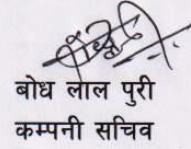 बोध लाल पुरी
कम्पनी सचिव